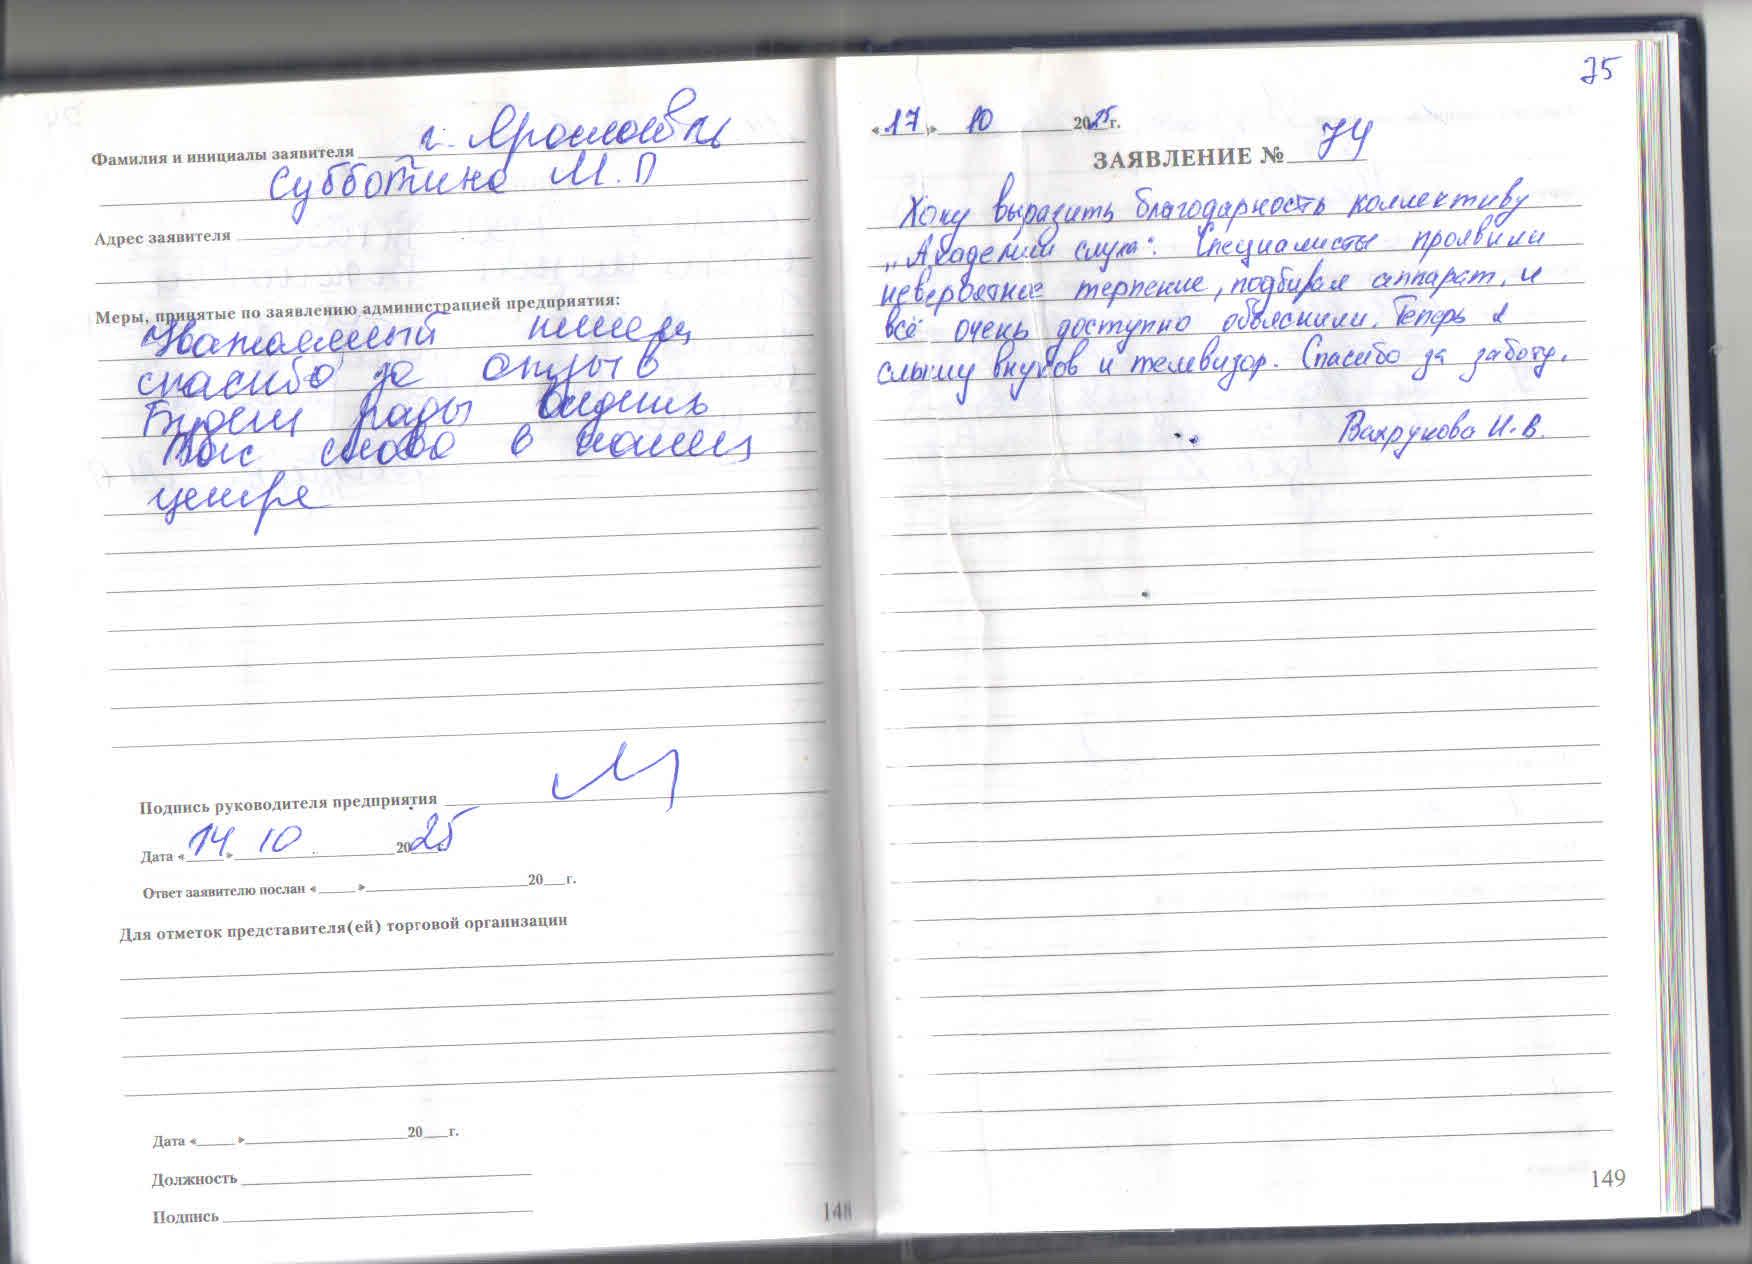 Фамилия и инициалы заявителя г. Ярославль
Субботина М. П
Адрес заявителя
Меры, принятые по заявлению администрацией предприятия:
Уважаемый
спасибо за отзыв
Будем рады видеть
Вас снова в нашем
центре
Подпись руководителя предприятия
Дата «14» 10 2025
Ответ заявителю послан «____»____20__г.
Для отметок представителя(ей) торговой организации
Дата «____»____20__г.
Должность
Подпись
148
75
«17» 10 2025г.
ЗАЯВЛЕНИЕ № 74
Хочу выразить благодарность коллективу
„Академии слуха“. Специалисты проявили
невероятное терпение, подбирая аппарат, и
всё очень доступно объяснили. Теперь я
слышу внуков и телевизор. Спасибо за заботу.
Вахрукова Н.В.
149